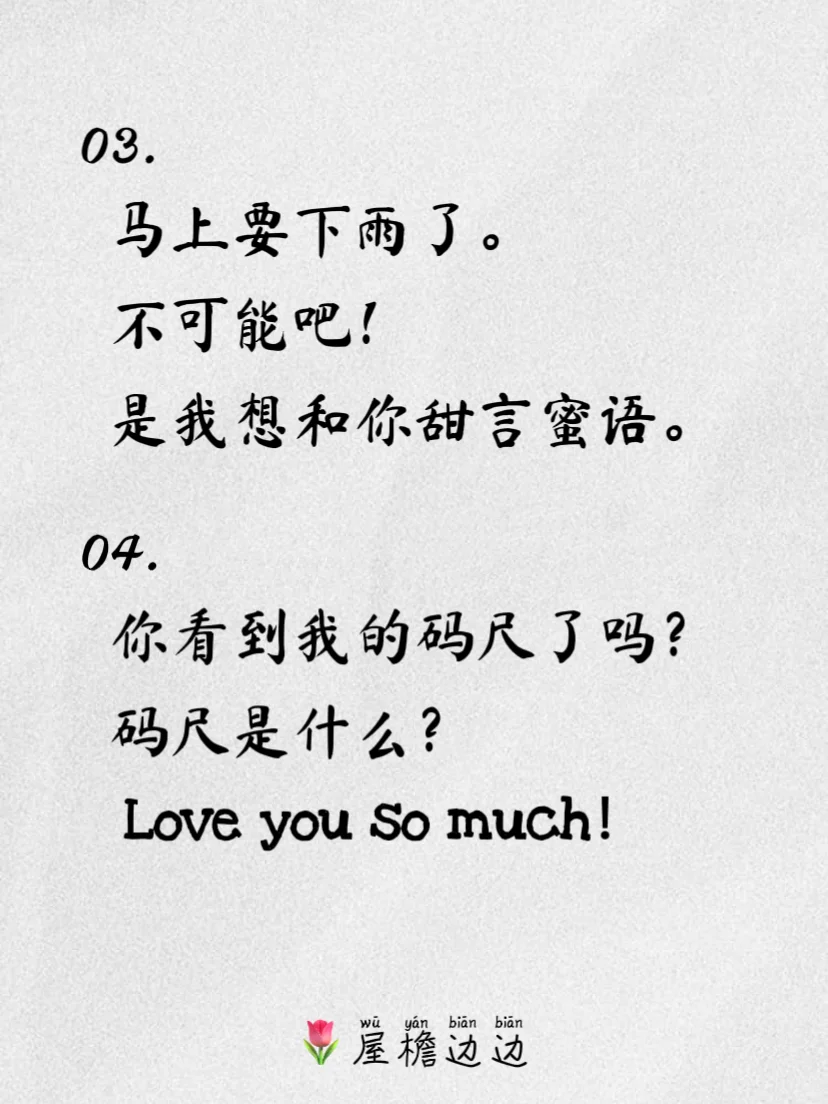 03.
马上要下雨了。
不可能吧！
是我想和你甜言蜜语。
04.
你看到我的码尺了吗？
码尺是什么？
Love you so much!
wū yán biān biān
屋檐边边